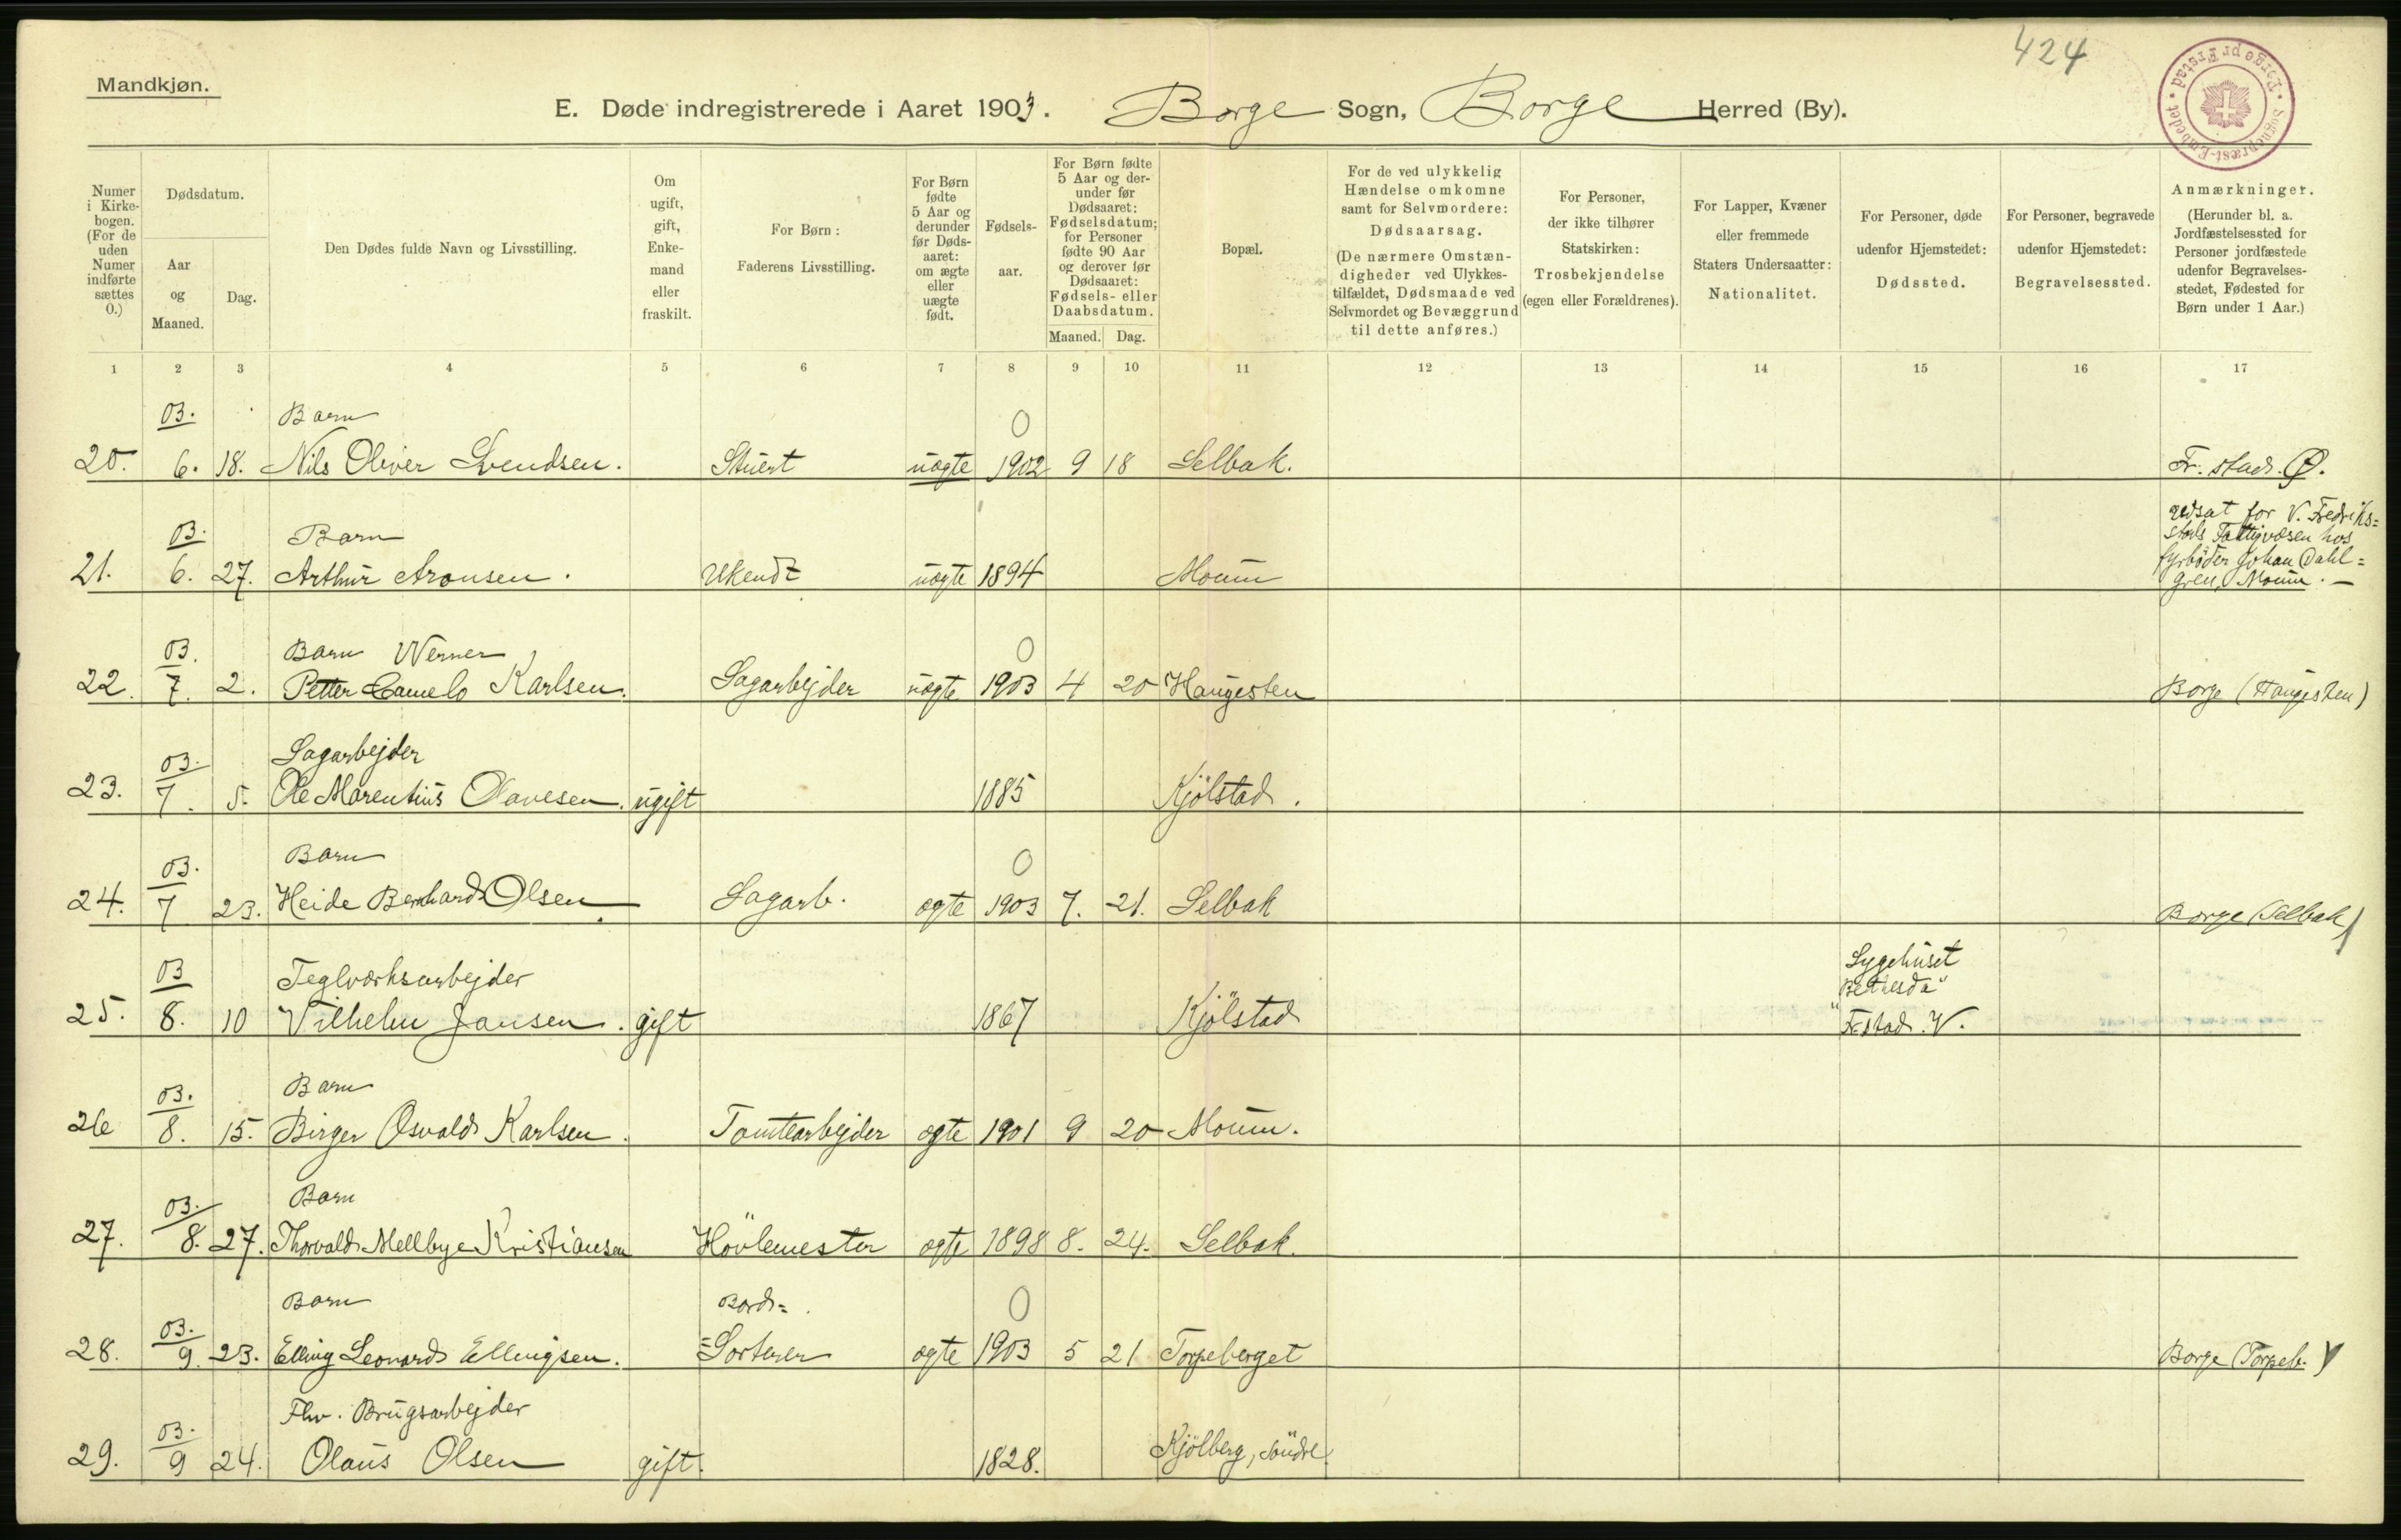 424
Mandkjøn.
E. Døde indregistrerede i Aaret 1903. Borge Sogn, Borge Herred (By).
Sognepræst-Embedet Borge pr Frstad
Numer i Kirke-bogen. (For de uden Numer indførte sættes 0.)
Dødsdatum.
Aar og Maaned.
Dag.
Den Dødes fulde Navn og Livsstilling.
Om ugift, gift, Enke-mand eller fraskilt.
For Børn: Faderens Livsstilling.
For Børn fødte 5 Aar og derunder før Døds-aaret: om ægte eller uægte født.
Fødsels-aar.
For Børn fødte 5 Aar og der-under før Dødsaaret: Fødselsdatum; for Personer fødte 90 Aar og derover før Dødsaaret: Fødsels- eller Daabsdatum.
Maaned. Dag.
Bopæl.
For de ved ulykkelig Hændelse omkomne samt for Selvmordere: Dødsaarsag. (De nærmere Omstæn-digheder ved Ulykkes-tilfældet, Dødsmaade ved Selvmordet og Bevæggrund til dette anføres.)
For Personer, der ikke tilhører Statskirken: Trosbekjendelse (egen eller Forældrenes).
For Lapper, Kvæner eller fremmede Staters Undersaatter: Nationalitet.
For Personer, døde udenfor Hjemstedet: Dødssted.
For Personer, begravede udenfor Hjemstedet: Begravelsessted.
Anmærkninger. (Herunder bl. a. Jordfæstelsessted for Personer jordfæstede udenfor Begravelses-stedet, Fødested for Børn under 1 Aar.)
1 2 3 4 5 6 7 8 9 10 11 12 13 14 15 16 17
03. Barn 0
20. 6. 18. Nils Oliver Svendsen. Stuert uægte 1902 9 18 Selbak. Fr.stad. Ø.
03. Barn
21. 6. 27. Arthur Aronsen. Ukendt uægte 1894 Moum
udsat for V. Fredriks=
stads Fattigvæsen hos
fyrbøder Johan Dahl=
gren, Moum. —
03. Barn Werner 0
22. 7. 2. Petter Karlsen. Sagarbejder uægte 1903 4 20 Haugesten Borge (Haugesten)
03. Sagarbejder
23. 7. 5. Ole Marentius Olavesen. ugift 1885 Kjölstad.
03. Barn 0
24. 7 23. Heide Bernhard Olsen Sagarb. ægte 1903 7. 21. Selbak Borge (Selbak)
03 Teglværksarbejder
25. 8. 10 Vilhelm Jansen. gift 1867 Kjölstad
Sygehuset
"Bethesda"
Fr.stad. V.
03. Barn
26 8. 15. Birger Osvald Karlsen. Tomtearbejder ægte 1901 9 20 Moum.
03. Barn
27. 8. 27. Thorvald Mellbye Kristiansen Hövlemester ægte 1898 8. 24. Selbak.
03. Barn Bord= 0
28. 9. 23. Elling Leonard Ellingsen. =Sorterer ægte 1903 5 21 Torpeberget Borge (Torpeb.)
03. Fhv. Brugsarbejder
29. 9 24. Olaus Olsen gift. 1828. Kjölberg, söndre